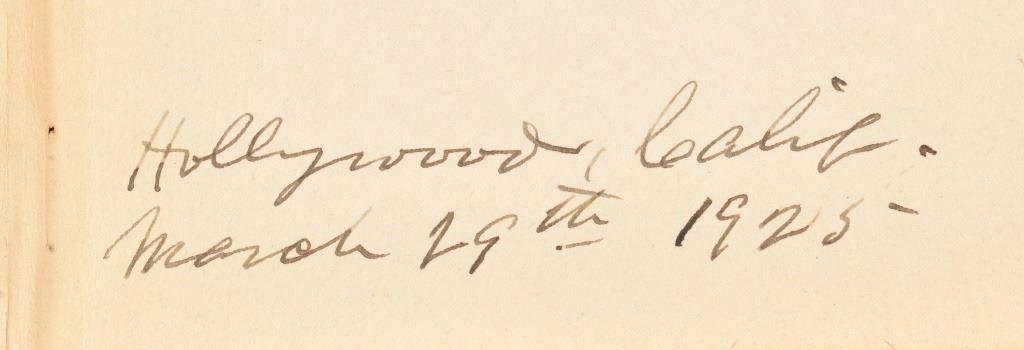 Hollywood, Calif.
March 29th 1925